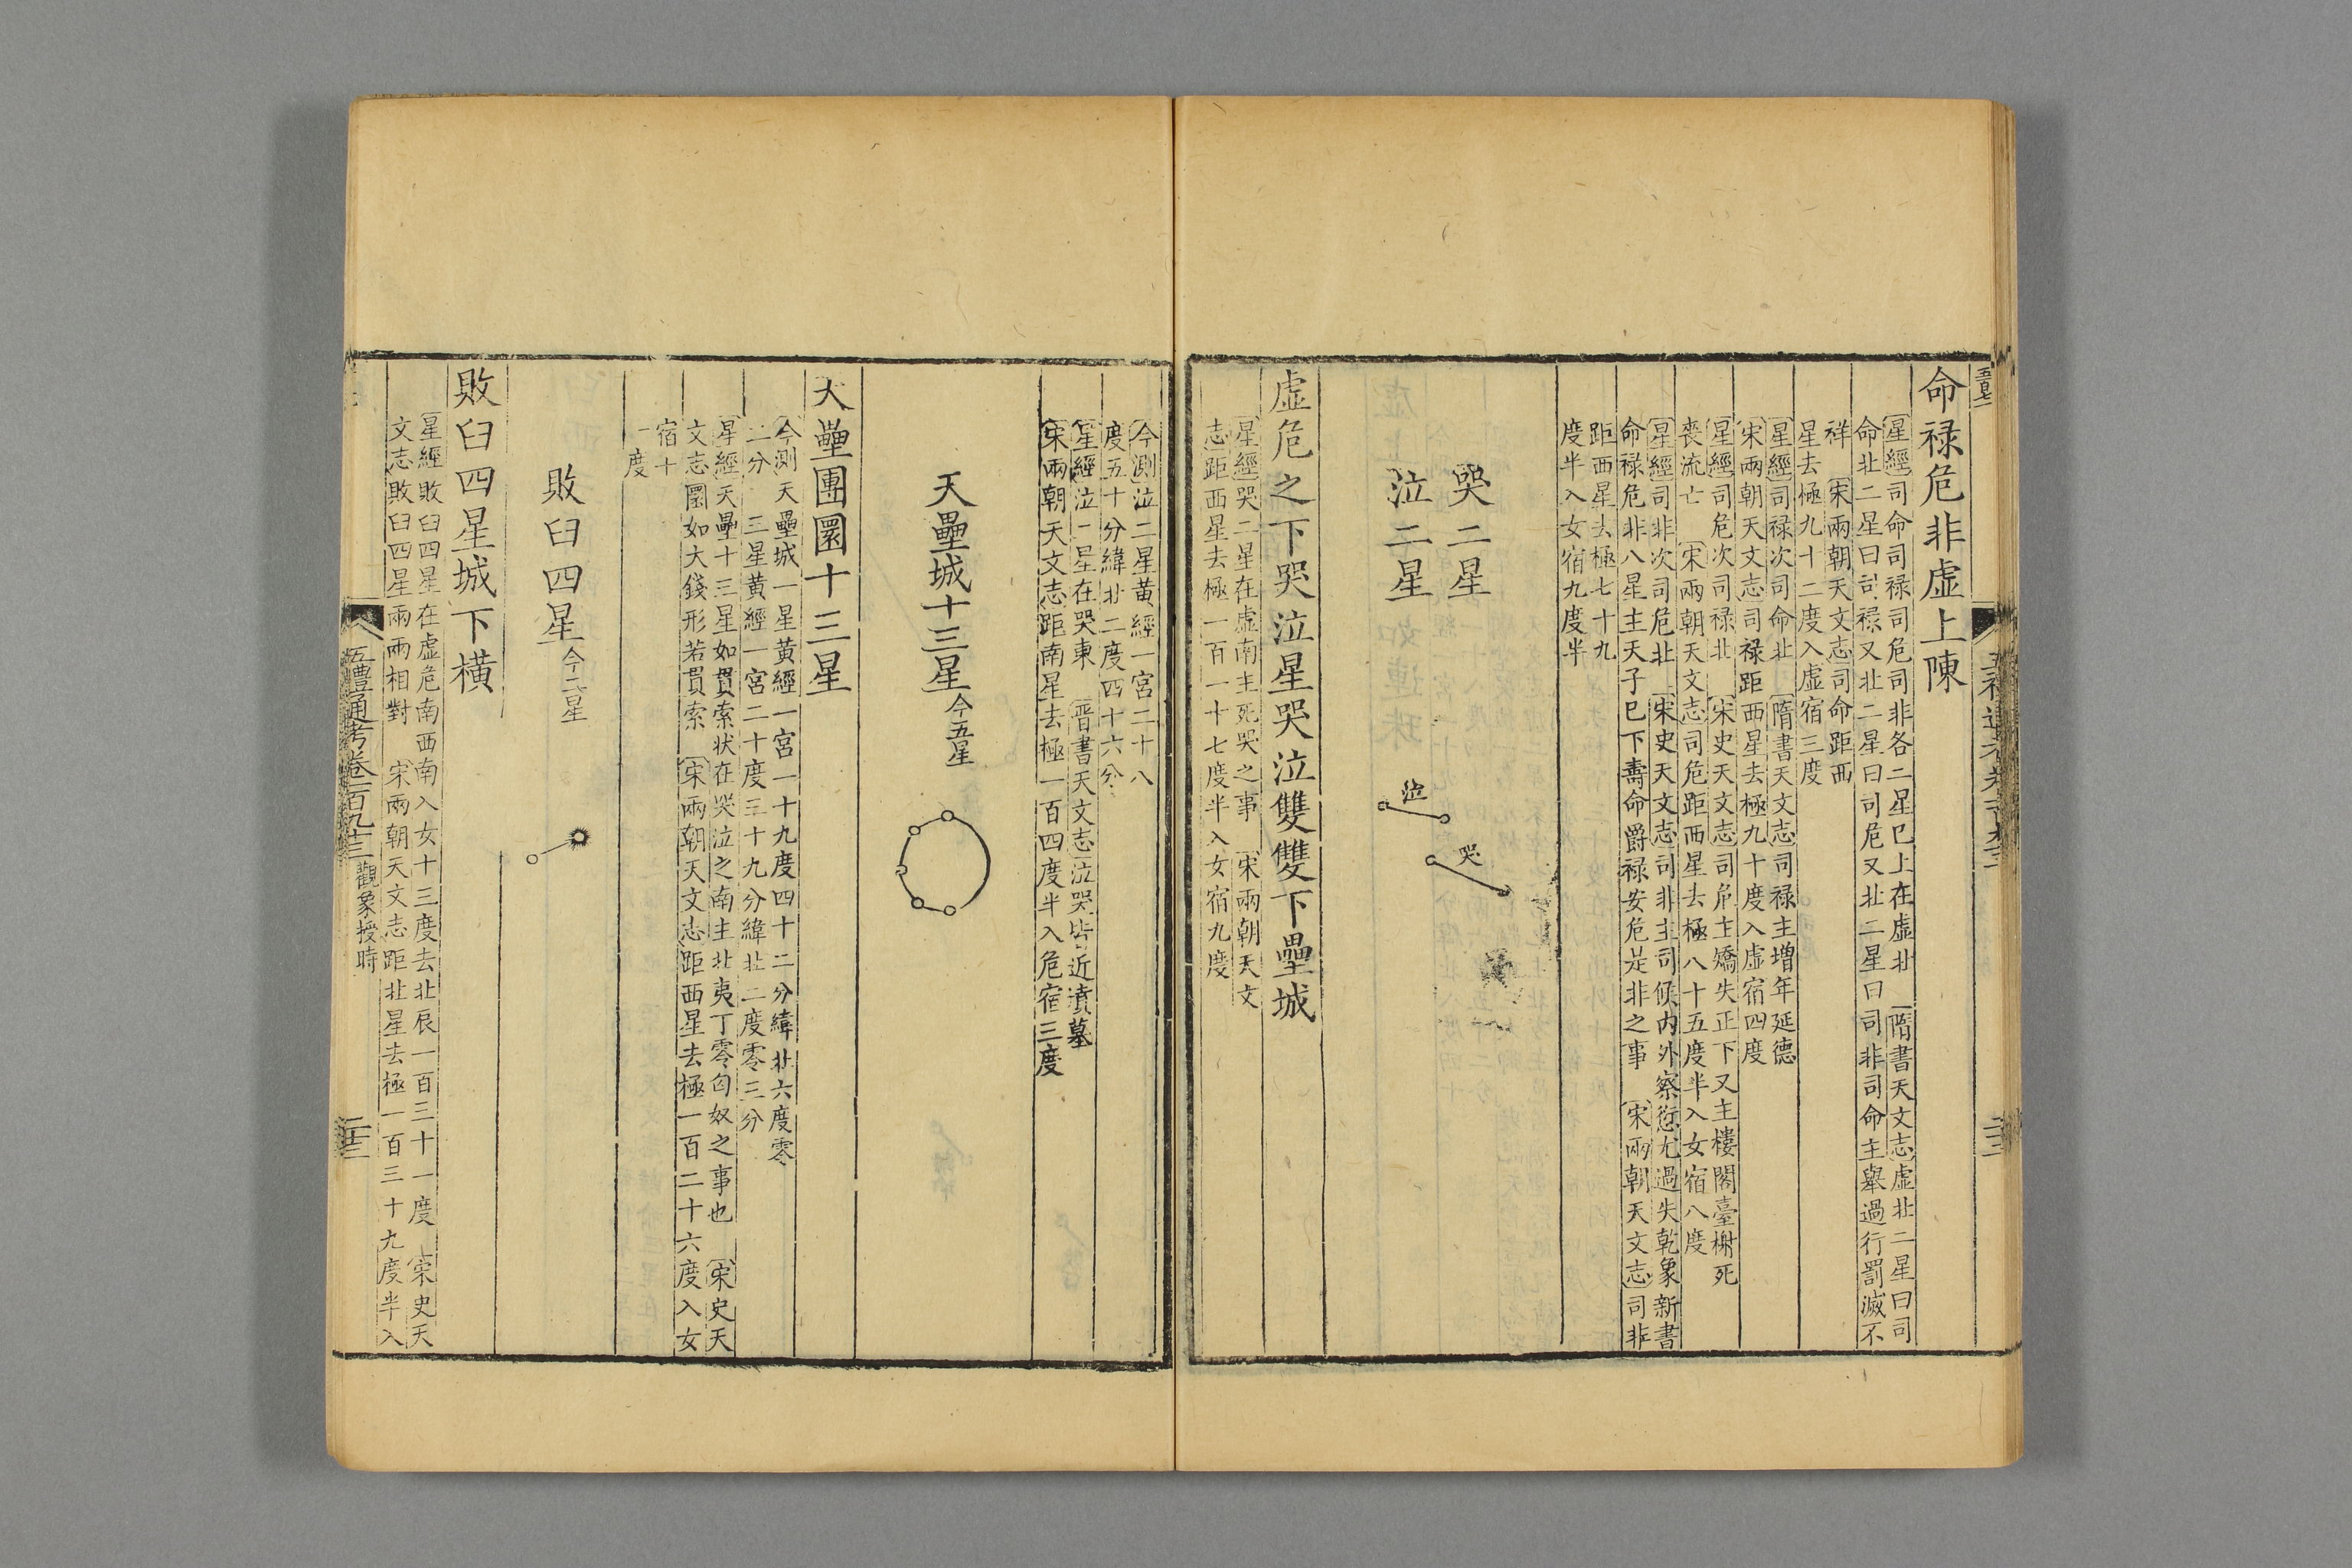 命禄危非虛上陳
星經司命司禄司危司非各二星巳上在虛北 隋書天文志虛北二星曰司
命北二星曰司禄又北二星曰司危又北二星曰司非司命主舉過行罰滅不
祥 宋兩朝天文志司命距西
星去極九十二度入虛宿三度
星經司禄次司命北 隋書天文志司禄主增年延德
宋兩朝天文志司禄距西星去極九十度入虛宿四度
星經司危次司禄北 宋史天文志司危主矯失正下又主樓閣臺榭死
喪流亡 宋兩朝天文志司危距西星去極八十五度半入女宿八度
星經司非次司危北 宋史天文志司非主司候内外察愆尤過失乾象新書
命禄危非八星主天子巳下壽命爵禄安危是非之事 宋兩朝天文志司非
距西星去極七十九
度半入女宿九度半
哭二星
泣二星
泣
哭
虛危之下哭泣星哭泣雙雙下壘城
星經哭二星在虛南主死哭之事 宋兩朝天文
志距西星去極一百一十七度半入女宿九度
今測泣二星黃經一宮二十八
度五十分緯北二度四十六分
星經泣二星在哭東 晋書天文志泣哭皆近墳墓
宋兩朝天文志距南星去極一百四度半入危宿三度
天壘城十三星今五星
天壘團圜十三星
今測天壘城一星黃經一宮一十九度四十二分緯北六度零
二分 三星黃經一宮二十度三十九分緯北二度零三分
星經天壘十三星如貫索状在哭泣之南主北夷丁零匈奴之事也 宋史天
文志圜如大錢形若貫索 宋兩朝天文志距西星去極一百二十六度入女
宿十
一度
敗臼四星今二星
敗臼四星城下橫
星經敗臼四星在虛危南西南入女十三度去北辰一百三十一度 宋史天
文志敗臼四星兩兩相對 宋兩朝天文志距北星去極一百三十九度半入
五禮通考卷一百九十三 觀象授時
二十三